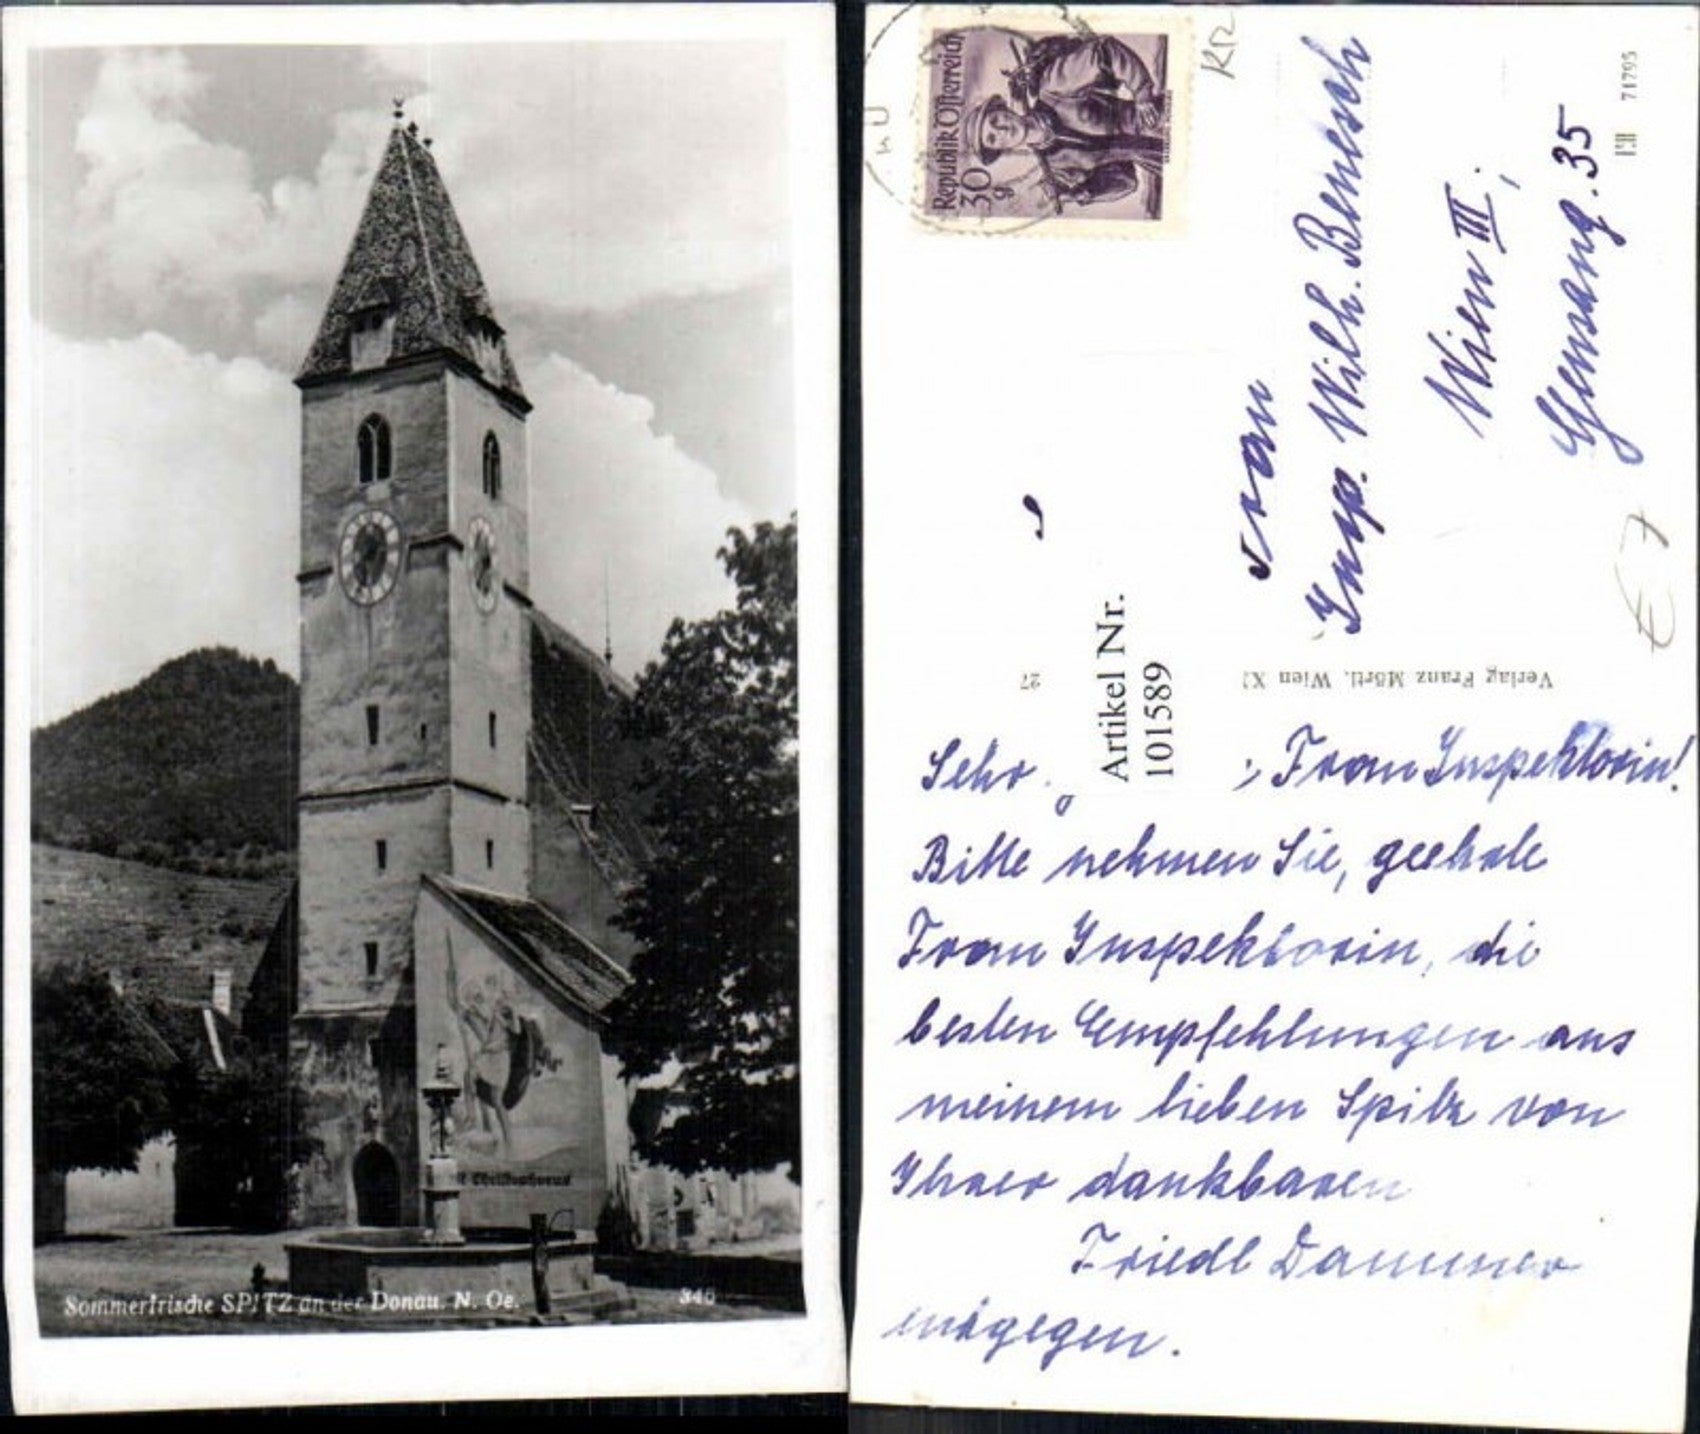 Sommerfrische SPITZ an der Donau. N. Oe.
346
St Christophorus
Republik Österreich
30 g
KR
Frau
Insp. Wilh. Benesch
Wien III.,
35
71795
€ 7
Verlag Franz Mörtl, Wien X
27
Artikel Nr.
101589
Sehr
Frau Inspektorin!
Bitte nehmen Sie, geehrte
Frau Inspektorin, die
besten Empfehlungen aus
meinem lieben Spitz von
Ihrer dankbaren
Friedl
entgegen.